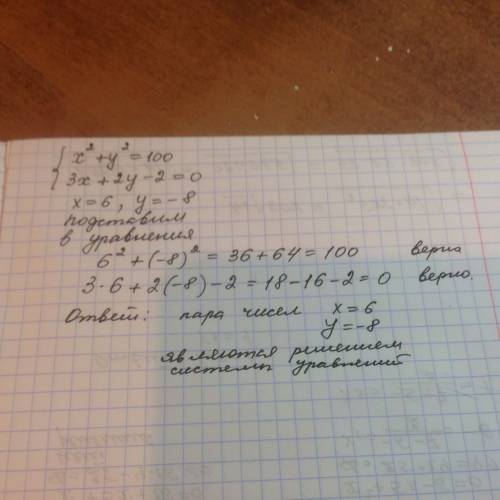 { x² + y² = 100
3x + 2y - 2 = 0
x = 6, y = -8
подставим
в уравнения
6² + (-8)² = 36 + 64 = 100 верна
3·6 + 2(-8) - 2 = 18 - 16 - 2 = 0 верно.
Ответ: пара чисел x = 6
y = -8
являются решением
системы уравнений